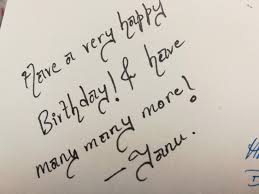 Have a very happy
Birthday! & have
many many more!
- Tanu.